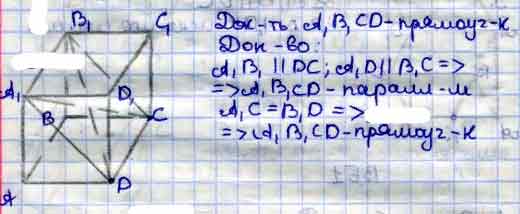 B₁
C₁
A₁
D₁
B
C
A
D
Док-ть: A₁B₁CD-прямоуг-к
Док-во:
A₁B₁ || DC; A₁D || B₁C =>
=> A₁B₁CD-паралл-м
A₁C = B₁D =>
=> A₁B₁CD-прямоуг.-к